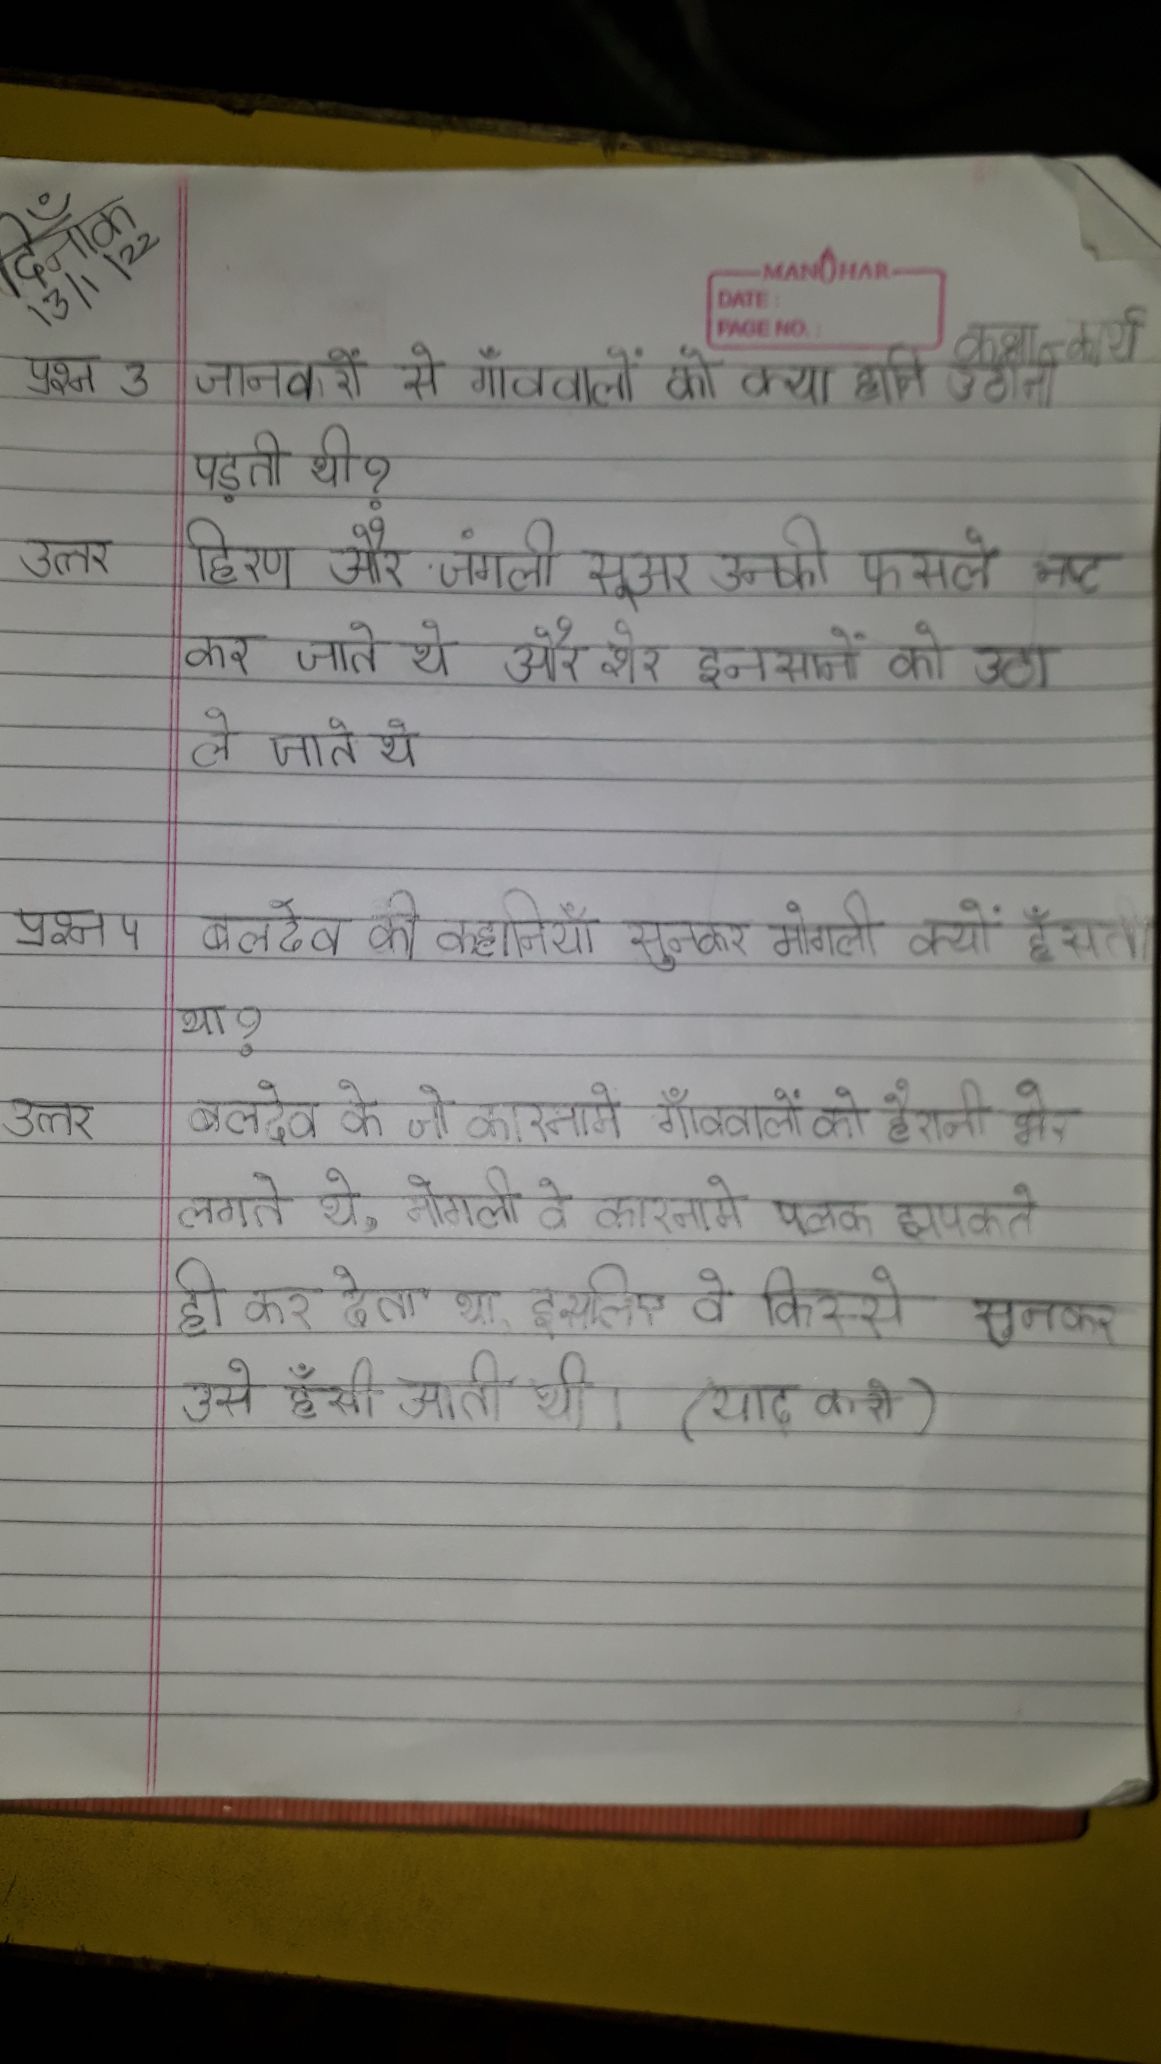 दिनाँक
13/1/22
MANOHAR
DATE :
PAGE NO. :
कक्षा-कार्य
प्रश्न 3 जानवरों से गाँववालों को क्या हानि उठानी
पड़ती थी?
उत्तर हिरण और जंगली सूअर उनकी फसले नष्ट
कर जाते थे और शेर इनसानों को उठा
ले जाते थे
प्रश्न 4 बलदेव की कहानियाँ सुनकर मोगली क्यों हँसता
था?
उत्तर बलदेव के जो कारनामे गाँववालों को हैरानी भरे
लगते थे, मोगली वे कारनामे पलक झपकते
ही कर देता था, इसलिए वे किस्से सुनकर
उसे हँसी आती थी। (याद करो)